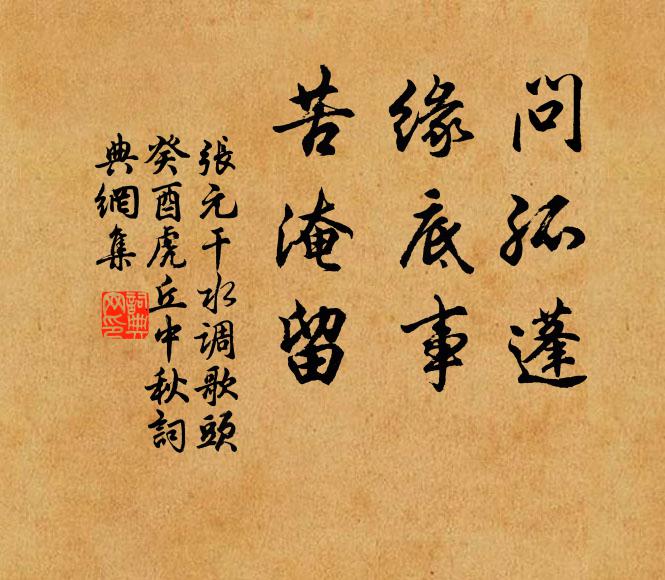 問孤蓬
緣底事
苦淹留
張元干水调歌頭
癸酉虎丘中秋詞
典網集
詞典網印